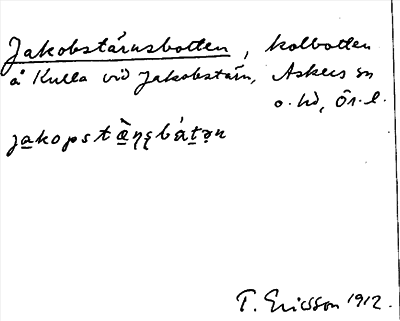 Jakobstärnsbotten, kolbotten
å Kulla vid Jakobstärn, Askers sn
o. hd, Ör. l.
jakopstä̀ṇṣbátən
T. Ericsson 1912.